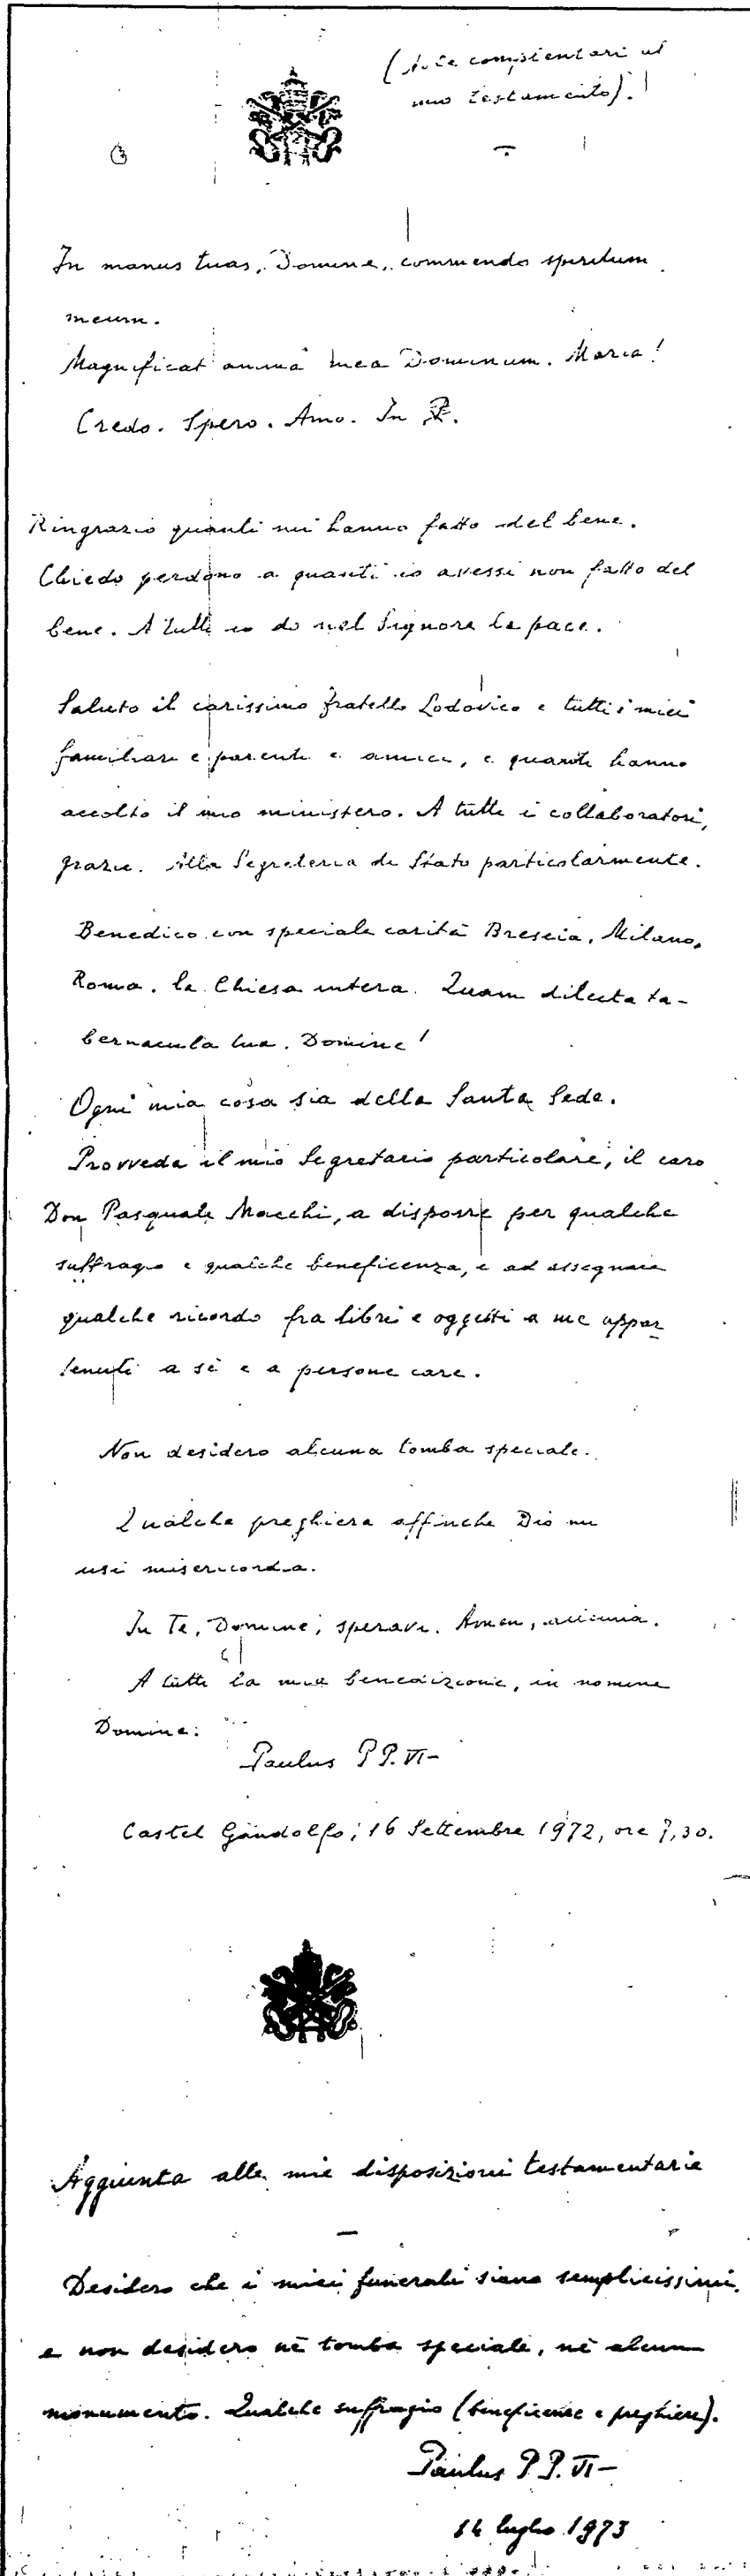 (Note complementari al
mio testamento).
In manus tuas, Domine, commendo spiritum
meum.
Magnificat anima mea Dominum. Maria!
Credo. Spero. Amo. In
Ringrazio quanti mi hanno fatto del bene.
Chiedo perdono a quanti io avessi non fatto del
bene. A tutti io do nel Signore la pace.
Saluto il carissimo fratello Lodovico e tutti i miei
familiari e parenti e amici, e quanti hanno
accolto il mio ministero. A tutti i collaboratori,
grazie. Alla Segreteria di Stato particolarmente.
Benedico con speciale carità Brescia, Milano,
Roma, la Chiesa intera. Quam dilecta ta-
bernacula tua, Domine!
Ogni mia cosa sia della Santa Sede.
Provveda il mio Segretario particolare, il caro
Don Pasquale Macchi, a disporre per qualche
suffragio e qualche beneficenza, e ad assegnare
qualche ricordo fra libri e oggetti a me appar
tenuti a sé e a persone care.
Non desidero alcuna tomba speciale.
Qualche preghiera affinché Dio mi
usi misericordia.
In Te, Domine, speravi. Amen, alleluia.
A tutti la mia benedizione, in nomine
Domini.
Paulus PP. VI-
Castel Gandolfo, 16 Settembre 1972, ore 7,30.
Aggiunta alle mie disposizioni testamentarie
Desidero che i miei funerali siano semplicissimi,
e non desidero né tomba speciale, né alcun
monumento. Qualche suffragio (beneficenze e preghiere).
Paulus PP. VI-
14 luglio 1973